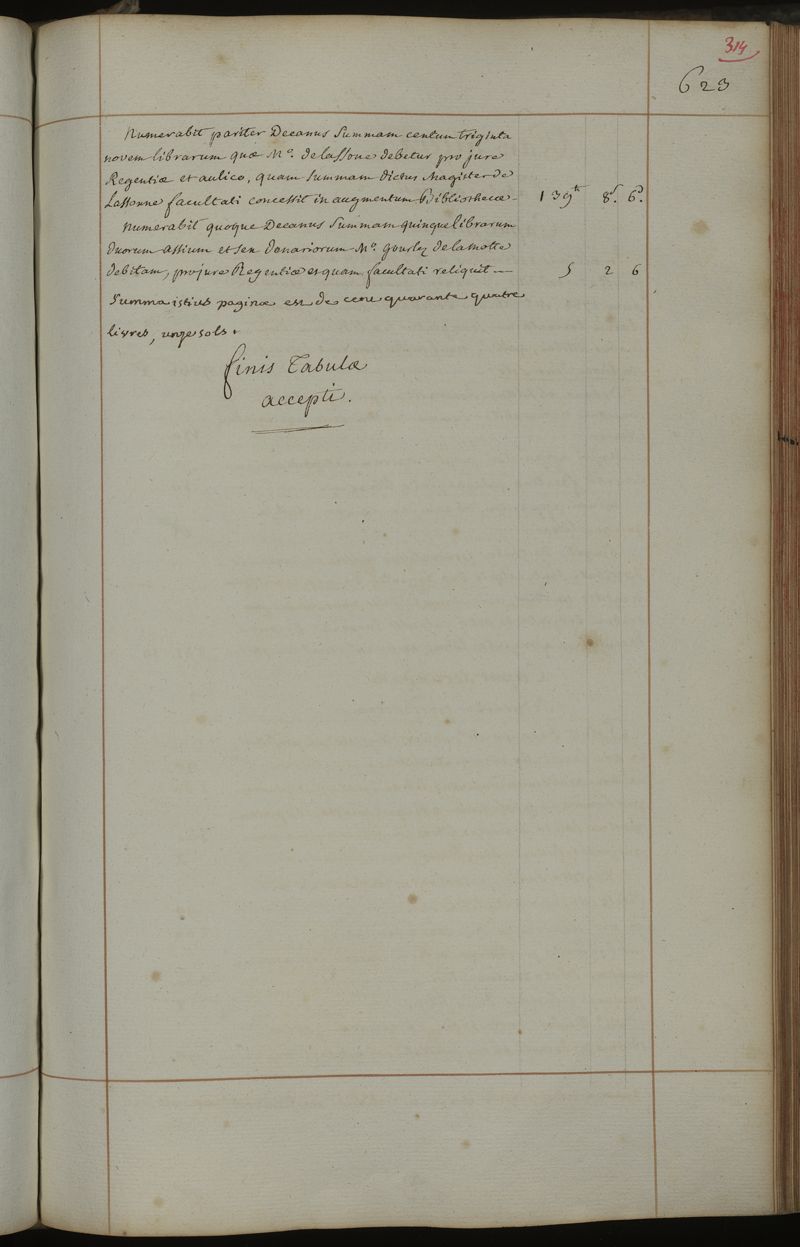 314
623
Numerabit pariter Decanus Summam centum triginta
novem librarum quæ M.o de lassone debetur pro jure
Regentiæ et aulico, quam summam dictus Magister de
Lassonne facultati concessit in augmentum Bibliothecæ - 139tt 8s. 6d.
Numerabit quoque Decanus Summam quinque librarum
duorum assium et sex denariorum M.o Gourlez de la motte
debitam, pro jure Regentiæ et quam facultati reliquit — 5 2 6
Summa istius paginæ est de cent quarante quatre
livres, unze sols.
finis Tabulæ
accepti.